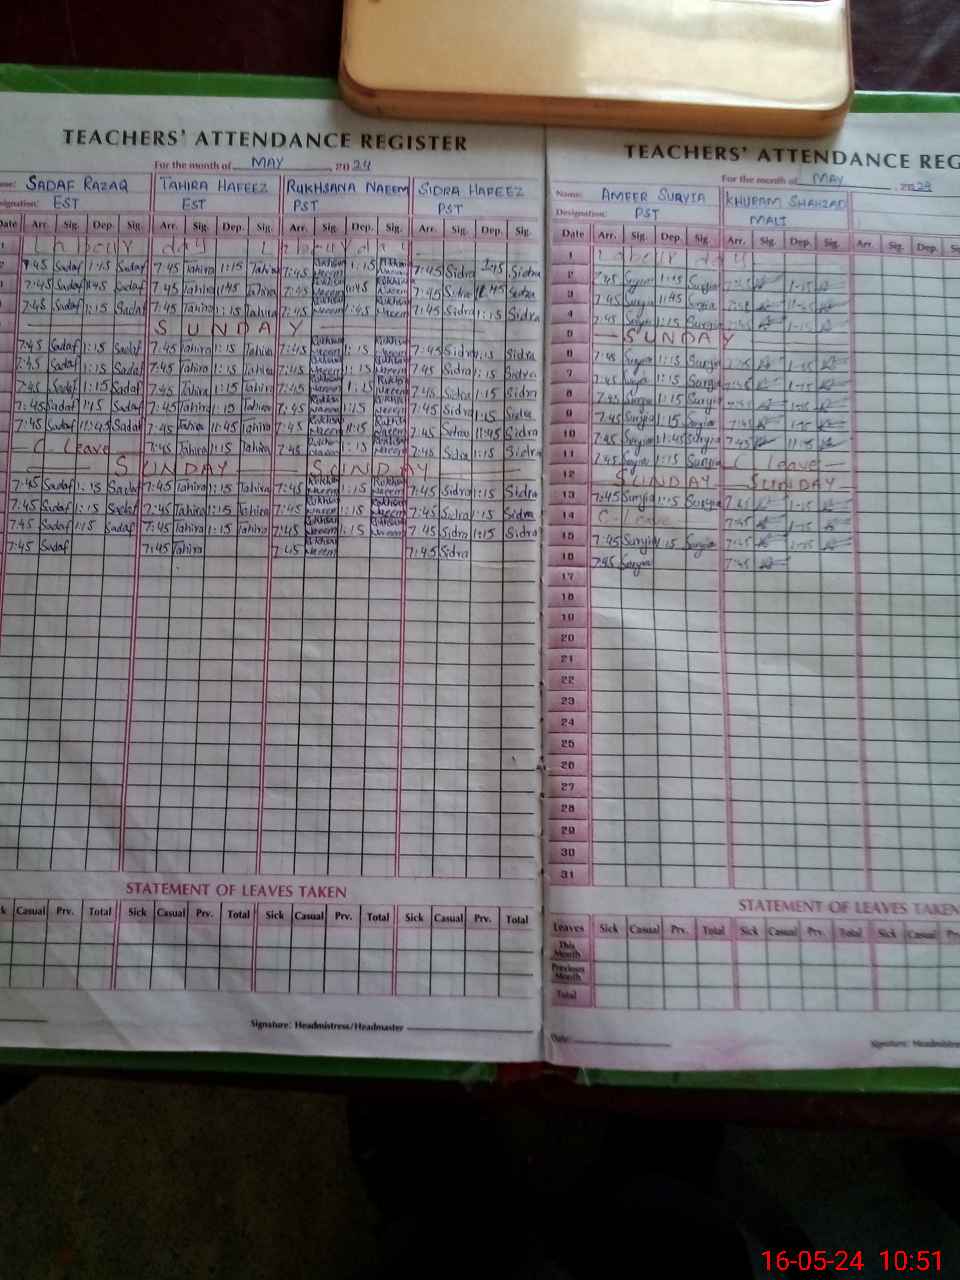 TEACHERS' ATTENDANCE REGISTER
For the month of MAY 2024
SADAF RAZAQ TAHIRA HAFEEZ RUKHSANA NAEEM SIDRA HAFEEZ
EST EST PST PST
Date Arr. Sig. Dep. Sig. Arr. Sig. Dep. Sig. Arr. Sig. Dep. Sig. Arr. Sig. Dep. Sig.
7:45 Sadaf 1:15 Sadaf 7:45 Tahira 1:15 Tahira 7:45 Rukhsana Naeem 1:15 Rukhsana Naeem 7:45 Sidra 1:15 Sidra
7:45 Sadaf 11:45 Sadaf 7:45 Tahira 11:45 Tahira 7:45 Rukhsana Naeem 11:45 Rukhsana Naeem 7:45 Sidra 11:45 Sidra
7:45 Sadaf 1:15 Sadaf 7:45 Tahira 1:15 Tahira 7:45 Rukhsana Naeem 1:15 Rukhsana Naeem 7:45 Sidra 1:15 Sidra
SUNDAY
7:45 Sadaf 1:15 Sadaf 7:45 Tahira 1:15 Tahira 7:45 Rukhsana Naeem 1:15 Rukhsana Naeem 7:45 Sidra 1:15 Sidra
7:45 Sadaf 1:15 Sadaf 7:45 Tahira 1:15 Tahira 7:45 Rukhsana Naeem 1:15 Rukhsana Naeem 7:45 Sidra 1:15 Sidra
7:45 Sadaf 1:15 Sadaf 7:45 Tahira 1:15 Tahira 7:45 Rukhsana Naeem 1:15 Rukhsana Naeem 7:45 Sidra 1:15 Sidra
7:45 Sadaf 1:15 Sadaf 7:45 Tahira 1:15 Tahira 7:45 Rukhsana Naeem 1:15 Rukhsana Naeem 7:45 Sidra 1:15 Sidra
7:45 Sadaf 11:45 Sadaf 7:45 Tahira 11:45 Tahira 7:45 Rukhsana Naeem 11:45 Rukhsana Naeem 7:45 Sidra 11:45 Sidra
C. Leave 7:45 Tahira 1:15 Tahira 7:45 1:15 Rukhsana Naeem 7:45 Sidra 1:15 Sidra
SUNDAY SUNDAY
7:45 Sadaf 1:15 Sadaf 7:45 Tahira 1:15 Tahira 7:45 Rukhsana Naeem 1:15 Rukhsana Naeem 7:45 Sidra 1:15 Sidra
7:45 Sadaf 1:15 Sadaf 7:45 Tahira 1:15 Tahira 7:45 Rukhsana Naeem 1:15 Rukhsana Naeem 7:45 Sidra 1:15 Sidra
7:45 Sadaf 1:15 Sadaf 7:45 Tahira 1:15 Tahira 7:45 Rukhsana Naeem 1:15 Rukhsana Naeem 7:45 Sidra 1:15 Sidra
7:45 Sadaf 7:45 Tahira 7:45 Rukhsana Naeem 7:45 Sidra
STATEMENT OF LEAVES TAKEN
Casual Prv. Total Sick Casual Prv. Total Sick Casual Prv. Total Sick Casual Prv. Total
Signature: Headmistress/Headmaster
TEACHERS' ATTENDANCE REG
For the month of MAY
Name: AMEER SURYIA KHURAM SHAHZAD
Designation: PST MALI
Date Arr. Sig. Dep. Sig. Arr. Sig. Dep. Sig. Arr. Sig. Dep.
1
2 7:45 Suryia 1:15 Suryia 1:15
3 7:45 Suryia 11:45 Suryia
4 7:45 Suryia 1:15 Suryia
5 SUNDAY
6 7:45 Suryia 1:15 Suryia
7 7:45 Suryia 1:15 Suryia
8 7:45 Suryia 1:15 Suryia
9 7:45 Suryia 1:15 Suryia
10 7:45 Suryia 11:45 Suryia 7:45 11:45
11 7:45 Suryia 1:15 Suryia C. Leave
12 SUNDAY SUNDAY
13 7:45 Suryia 1:15 Suryia 7:45 1:15
14 C. Leave 7:45 1:15
15 7:45 Suryia 1:15 Suryia 7:45 1:15
16 7:45 Suryia 7:45
17
18
19
20
21
22
23
24
25
26
27
28
29
30
31
STATEMENT OF LEAVES TAKEN
Leaves Sick Casual Prv. Total Sick Casual Prv. Total Sick Casual
This Month
Previous Month
Total
Date:
Signature: Headmistre
16-05-24 10:51